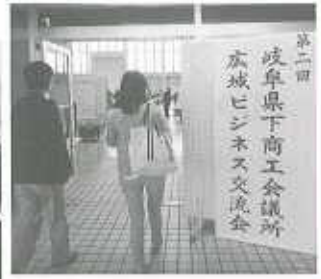 第二回
岐阜県下商工会議所
広域ビジネス交流会